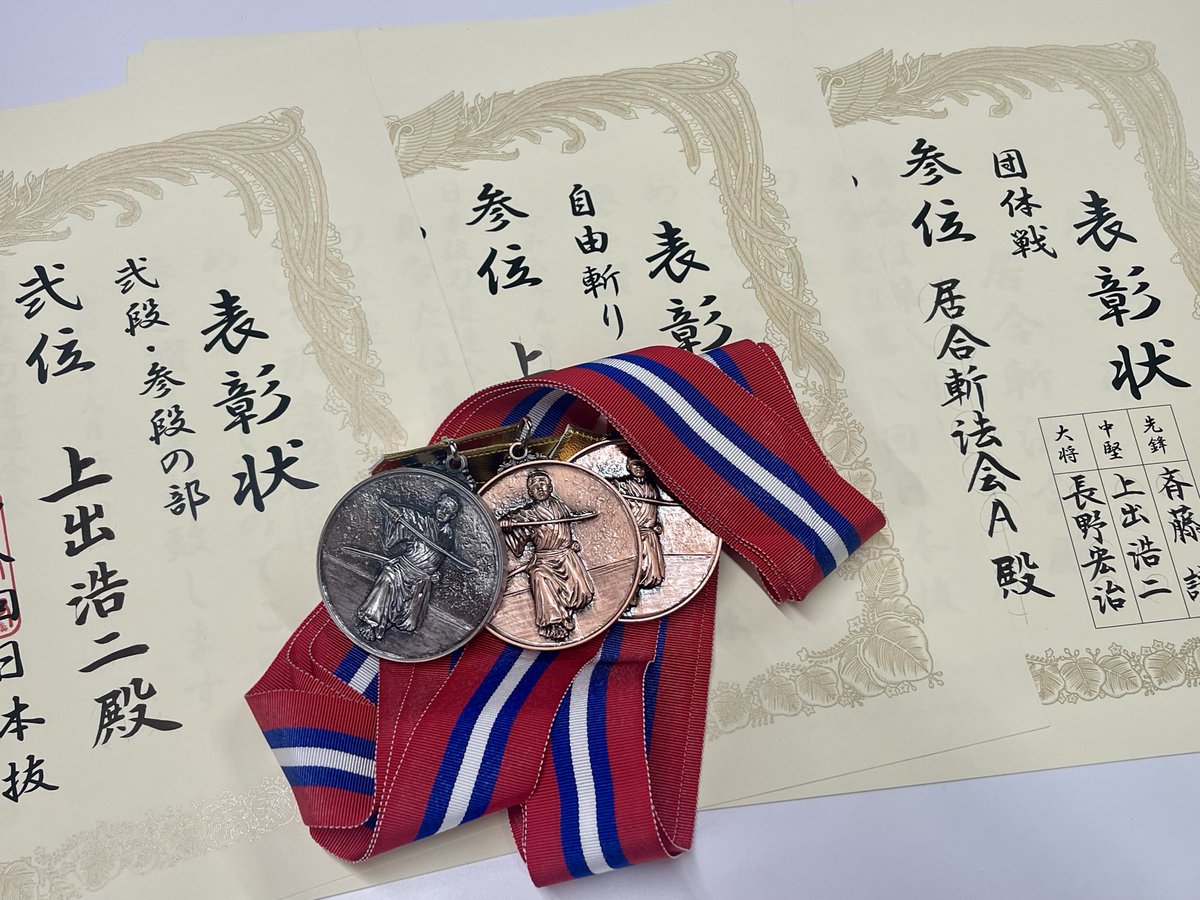 表彰状
団体戦
参位 居合斬法会A殿
先鋒 斉藤
中堅 上出浩二
大将 長野宏治
表彰
自由斬り
参位 上
表彰状
弐段・参段の部
弐位 上出浩二殿
日本抜